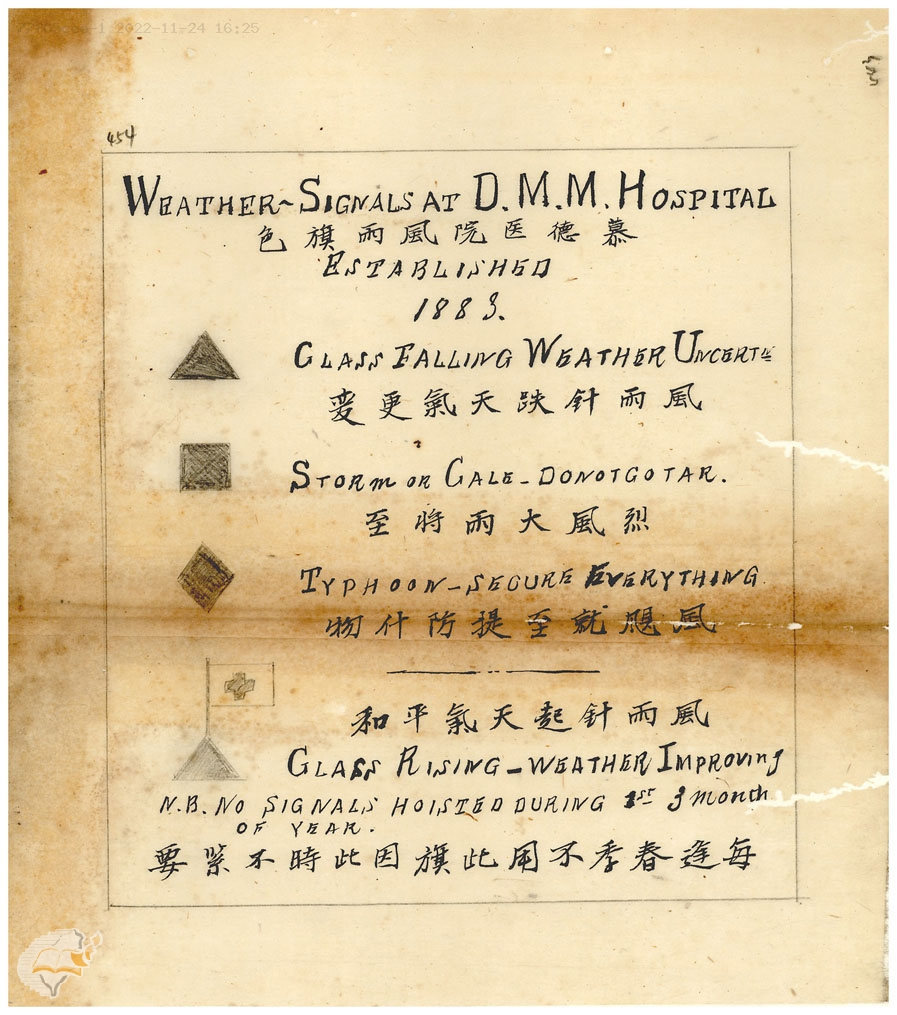 2022-11-24 16:25
454
WEATHER~SIGNALS AT D.M.M. HOSPITAL
慕德医院風雨旗色
ESTABLISHED
1883.
GLASS FALLING WEATHER
風雨針跌天氣更変
STORM OR GALE - DONOTGOTAR.
烈風大雨將至
TYPHOON - SECURE EVERYTHING.
風颶就至提防什物
風雨針起天氣平和
GLASS RISING - WEATHER IMPROVING
N.B. NO SIGNALS HOISTED DURING 1ST 3 month
OF YEAR.
每逢春季不用此旗因此時不緊要